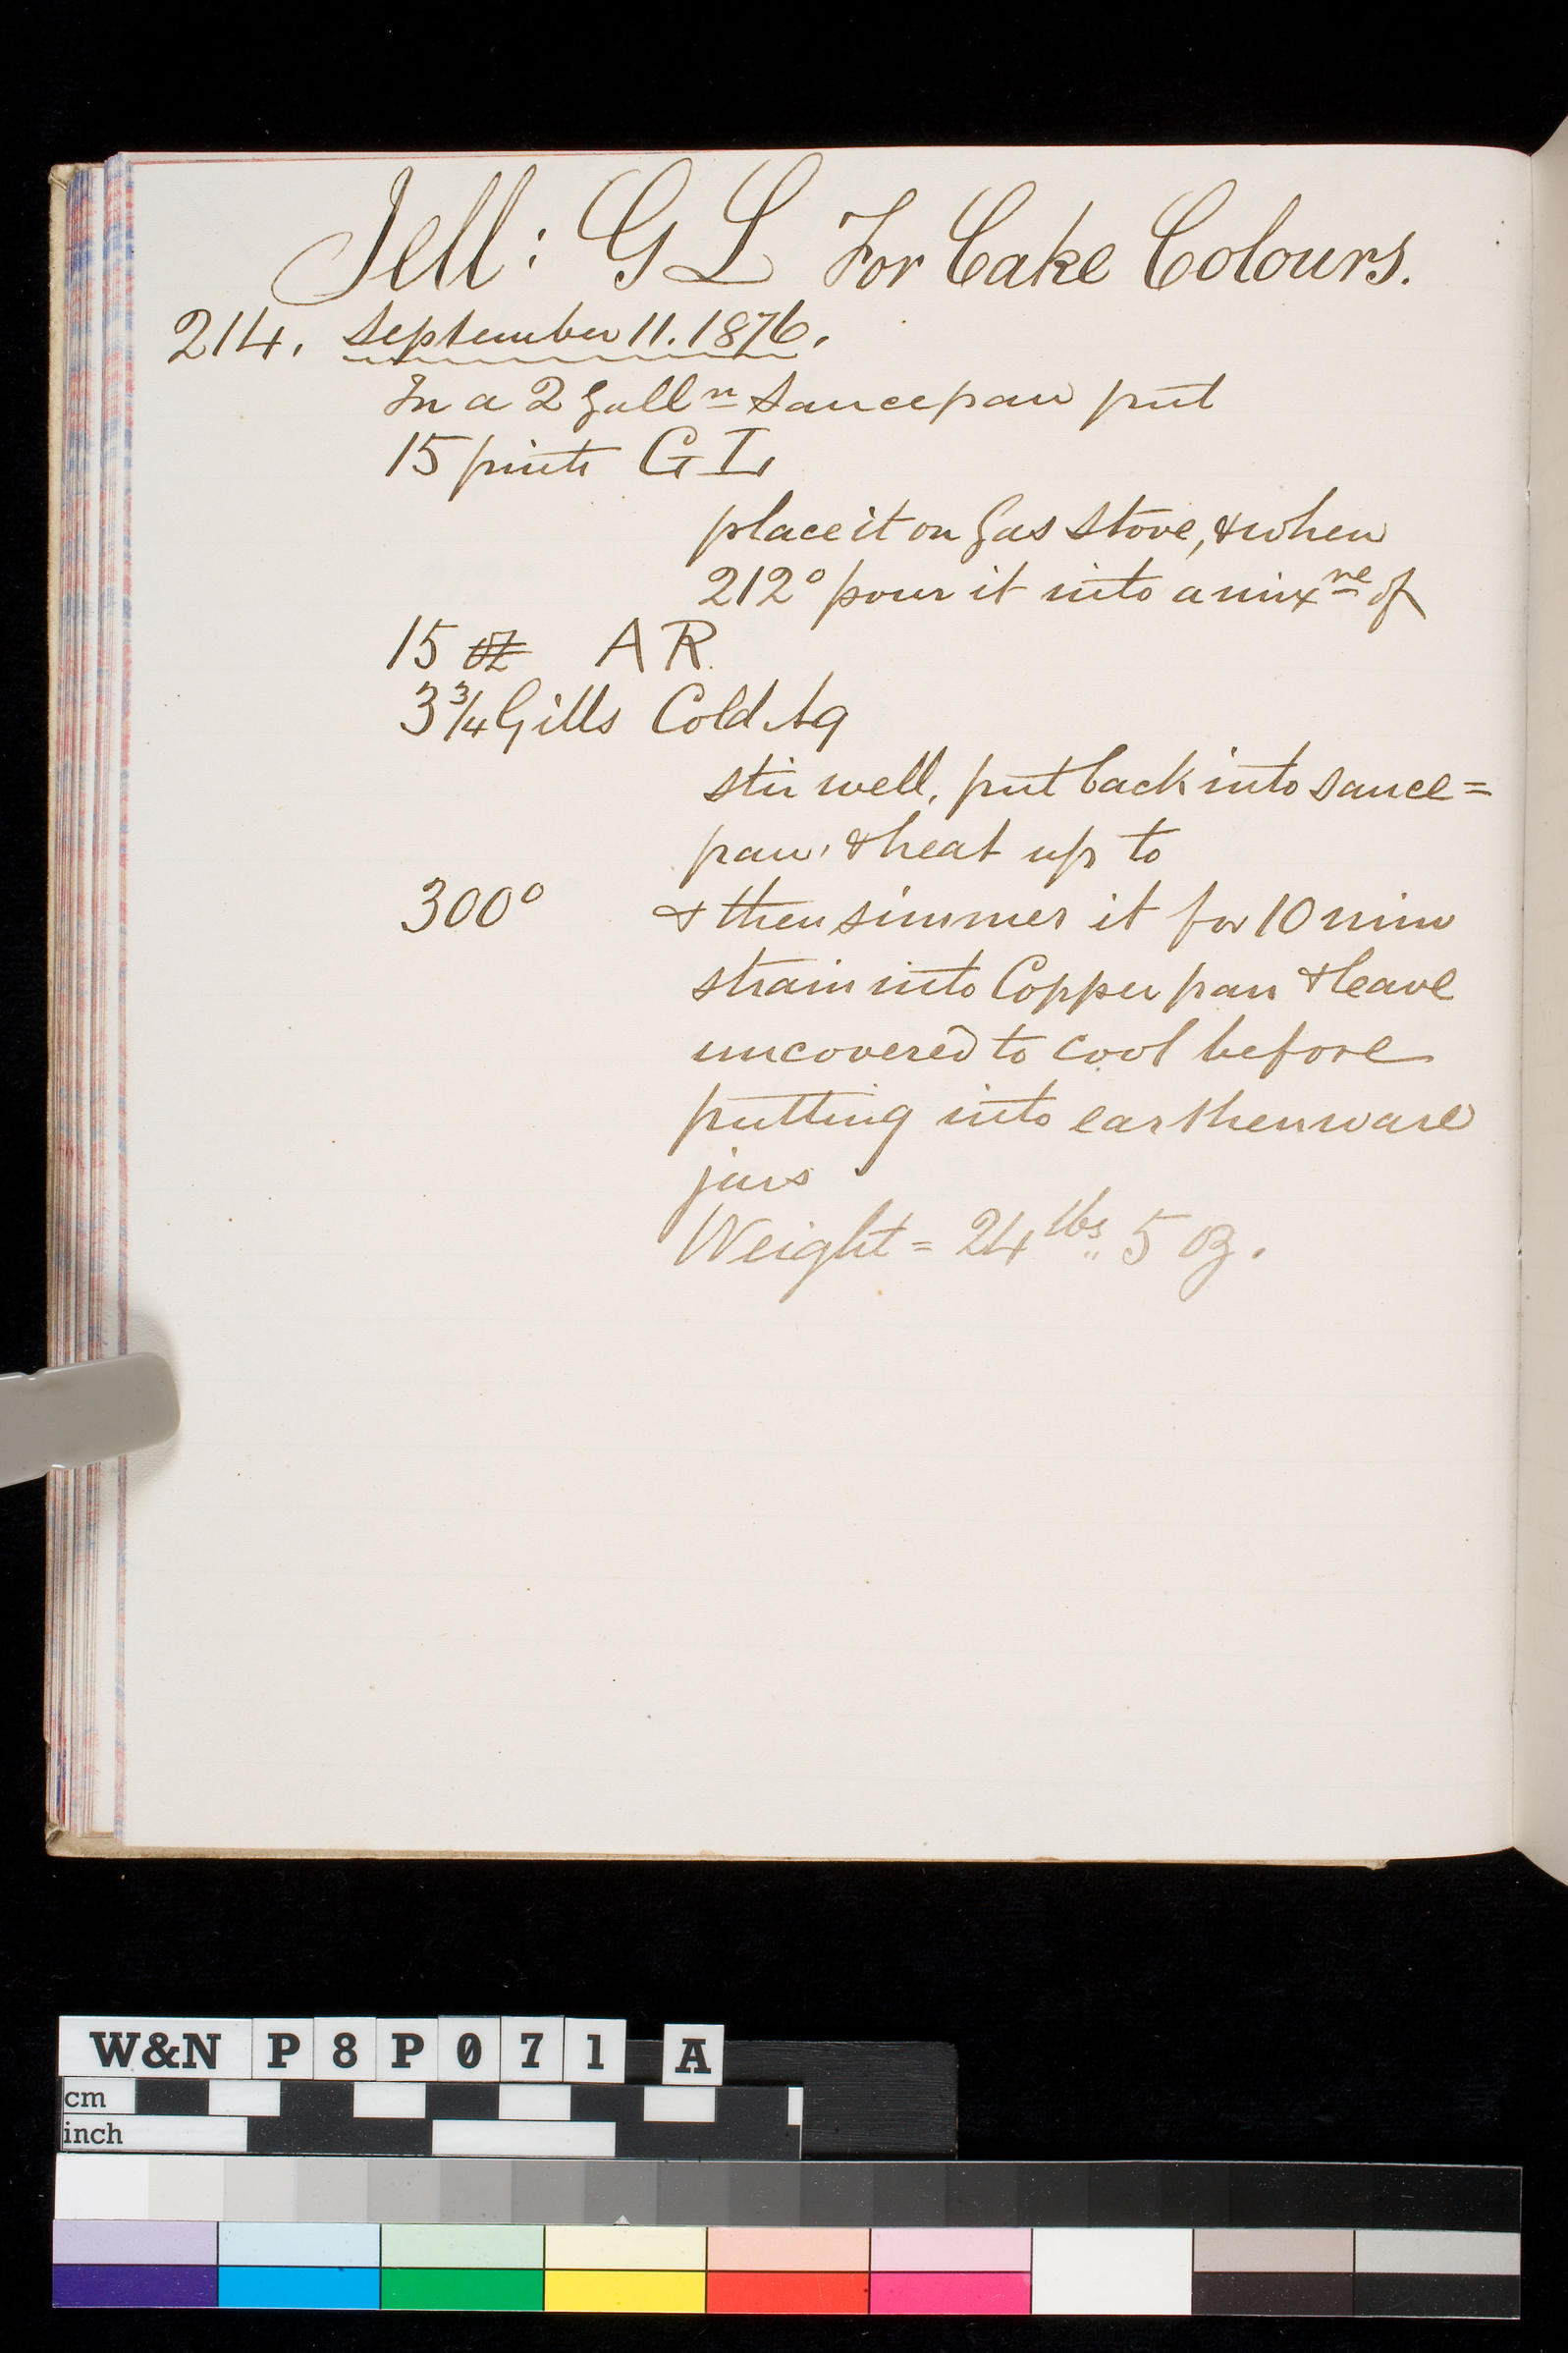 Jell: G L For Cake Colours.
214. September 11. 1876.
In a 2 Galln Saucepan put
15 pints G L
place it on Gas Stove, & when
212° pour it into a mixre of
15 oz A R.
3 3/4 Gills Cold Aq
stir well, put back into sauce=
pan, & heat up to
300° & then simmer it for 10 min
strain into Copper pan & leave
uncovered to cool before
putting into earthenware
jars
Weight = 24 lbs 5 oz.
W&N P8P071 A
cm
inch